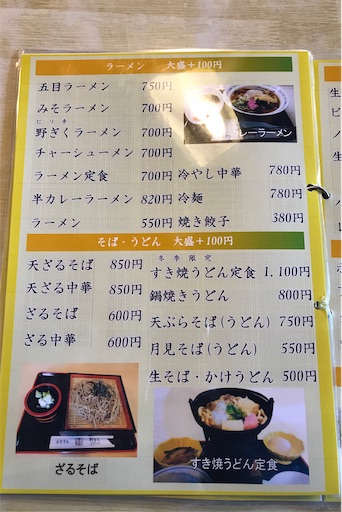 ラーメン 大盛+100円
五目ラーメン 750円
みそラーメン 700円
ピリキ
野ぎくラーメン 700円
チャーシューメン 700円
ラーメン定食 700円
半カレーラーメン 820円
ラーメン 550円
カレーラーメン
冷やし中華 780円
冷麺 780円
焼き餃子 380円
そば・うどん 大盛+100円
天ざるそば 850円
天ざる中華 850円
ざるそば 600円
ざる中華 600円
冬季限定
すき焼うどん定食 1.100円
鍋焼きうどん 800円
天ぷらそば(うどん) 750円
月見そば(うどん) 550円
生そば・かけうどん 500円
ざるそば
すき焼うどん定食